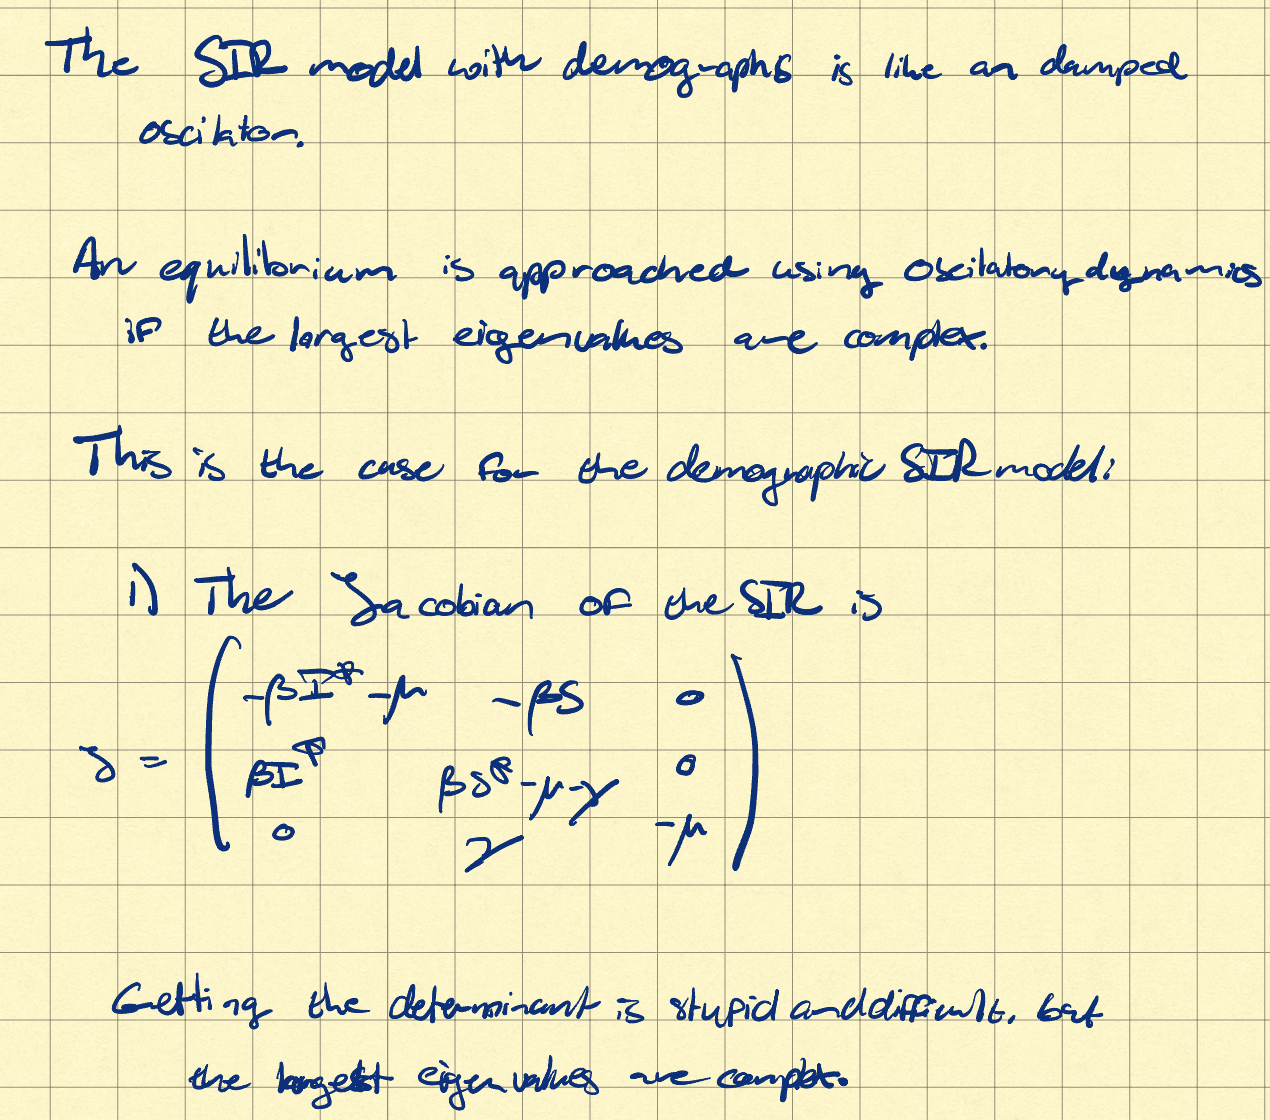 The SIR model with demographs is like an damped
oscilator.
An equilibrium is approached using oscilatory dynamics
if the largest eigenvalues are complex.
This is the case for the demographic SIR model:
i) The Jacobian of the SIR is
-βI* -μ -βS 0
J = βI* βS* -μ-γ 0
0 γ -μ
Getting the determinant is stupid and difficult, but
the largest eigenvalues are complex.